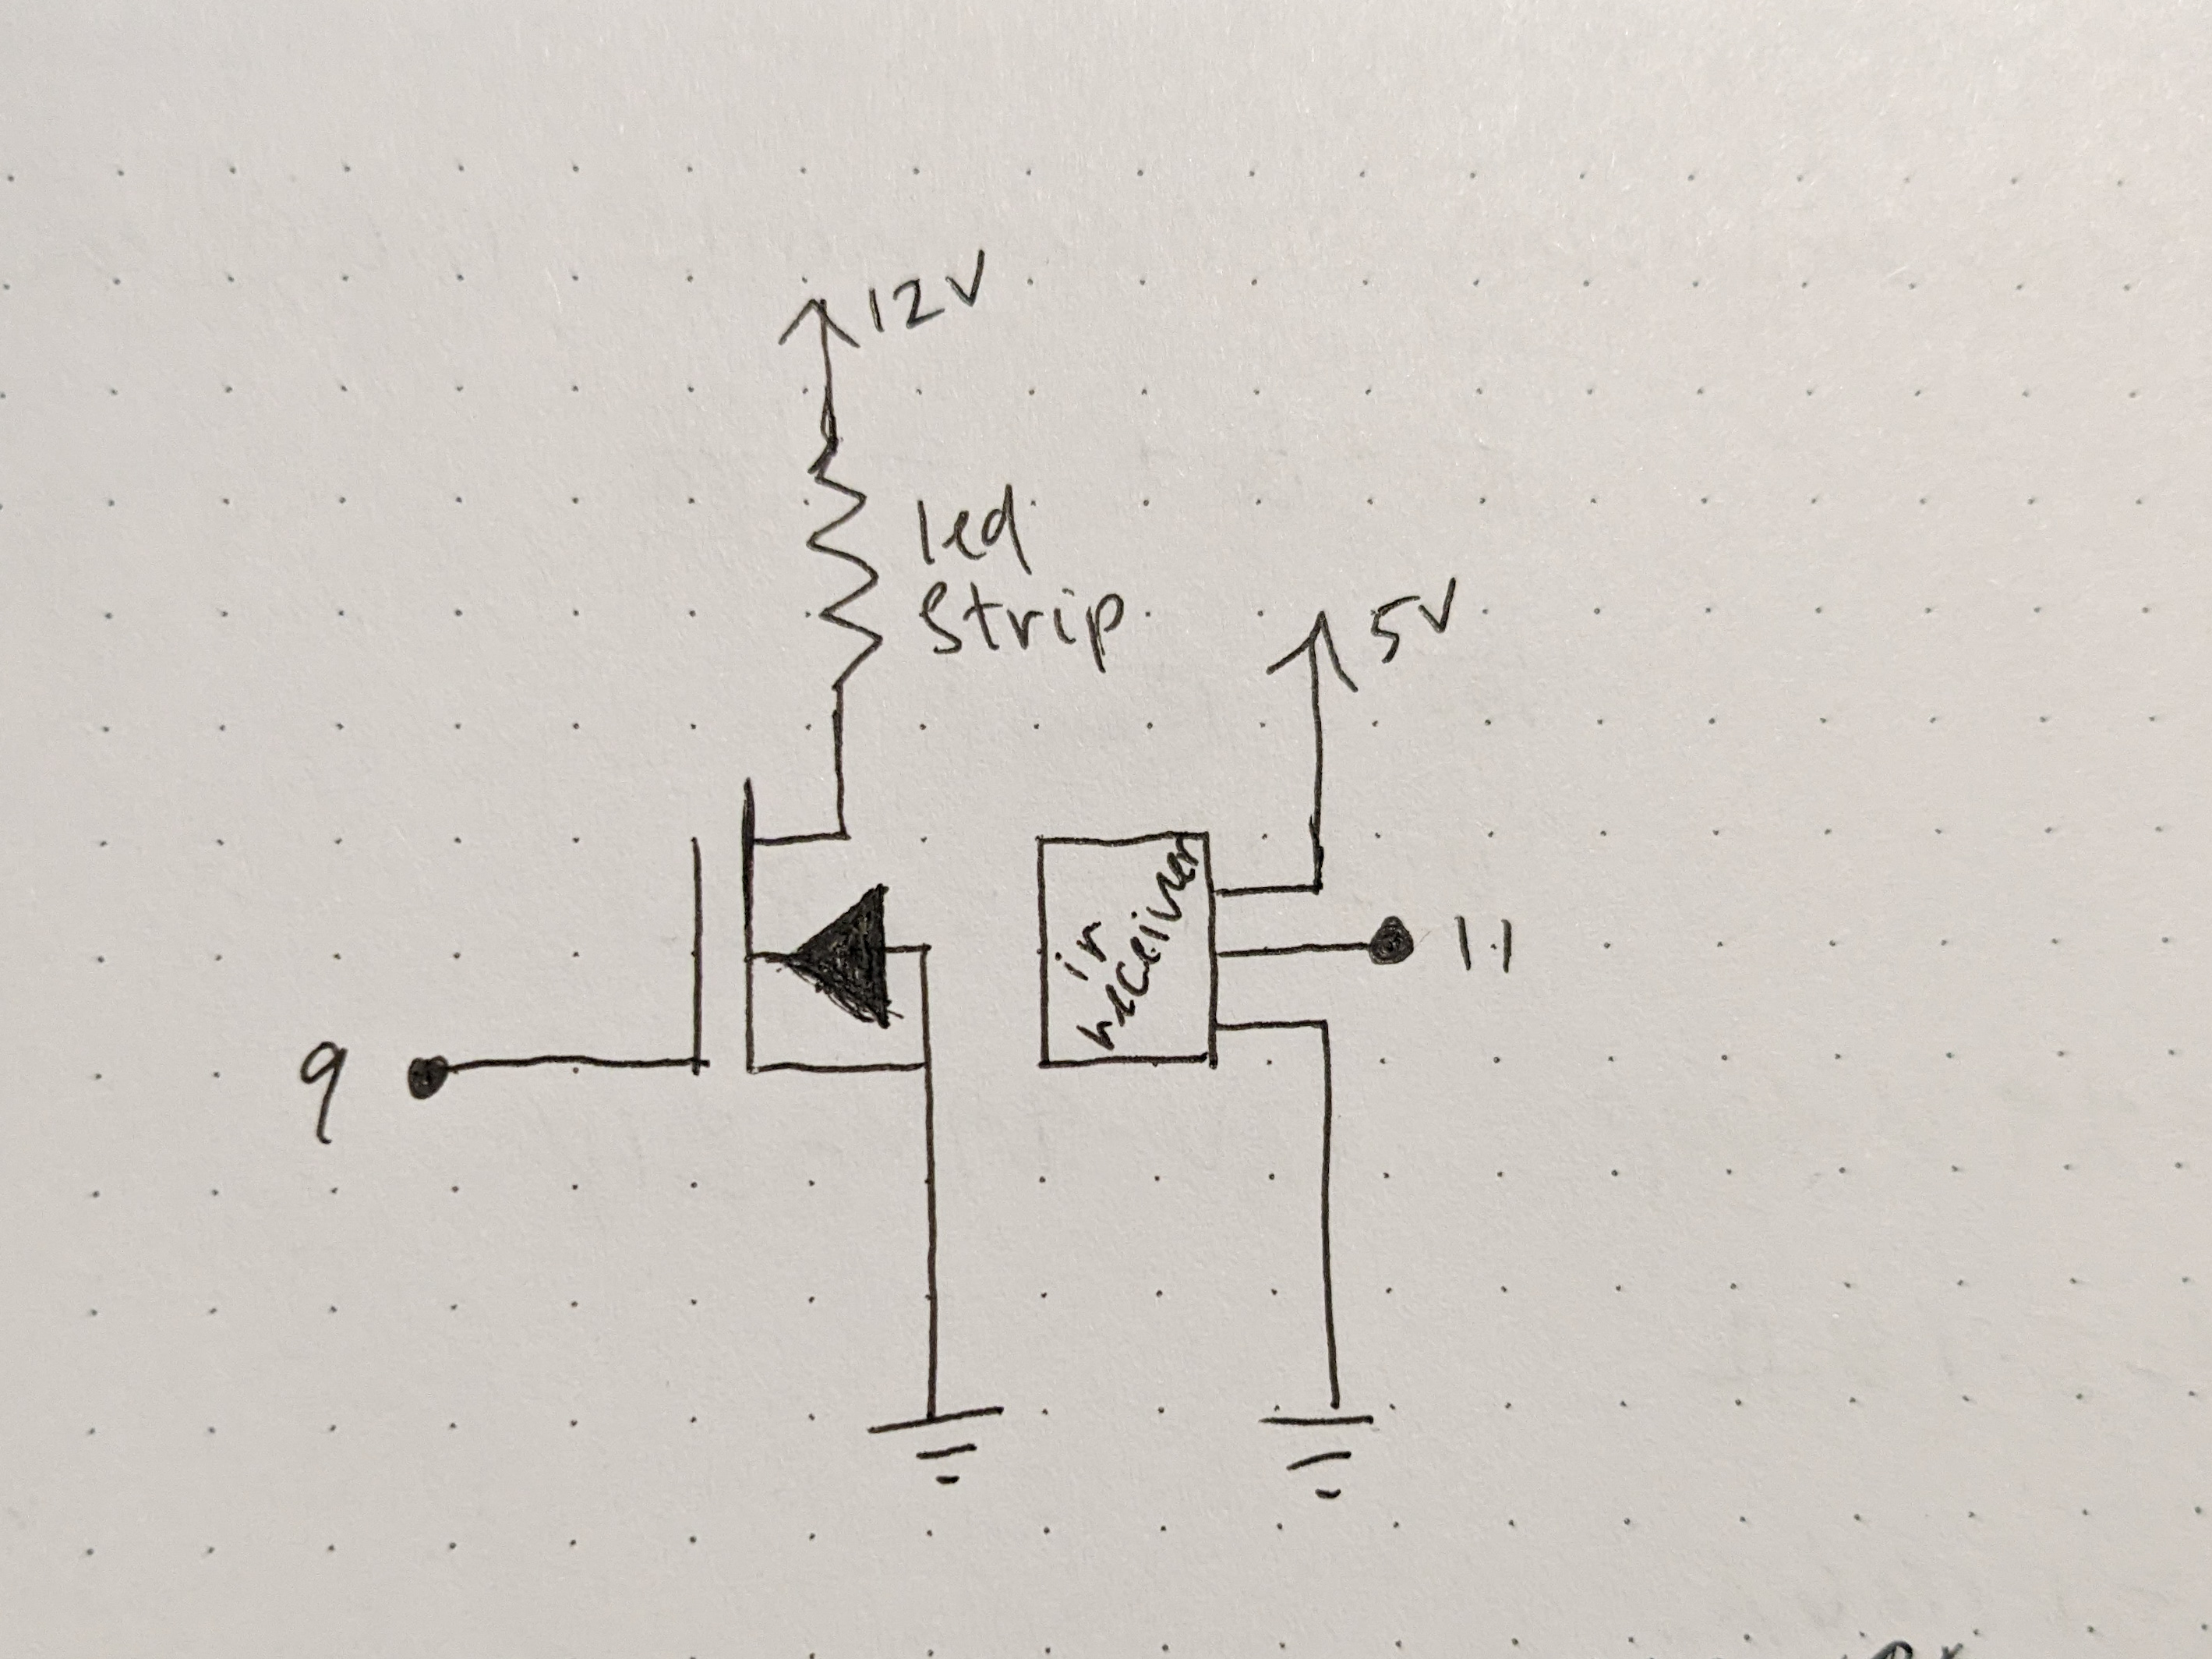 12V
led
strip
5V
ir
receiver
11
9